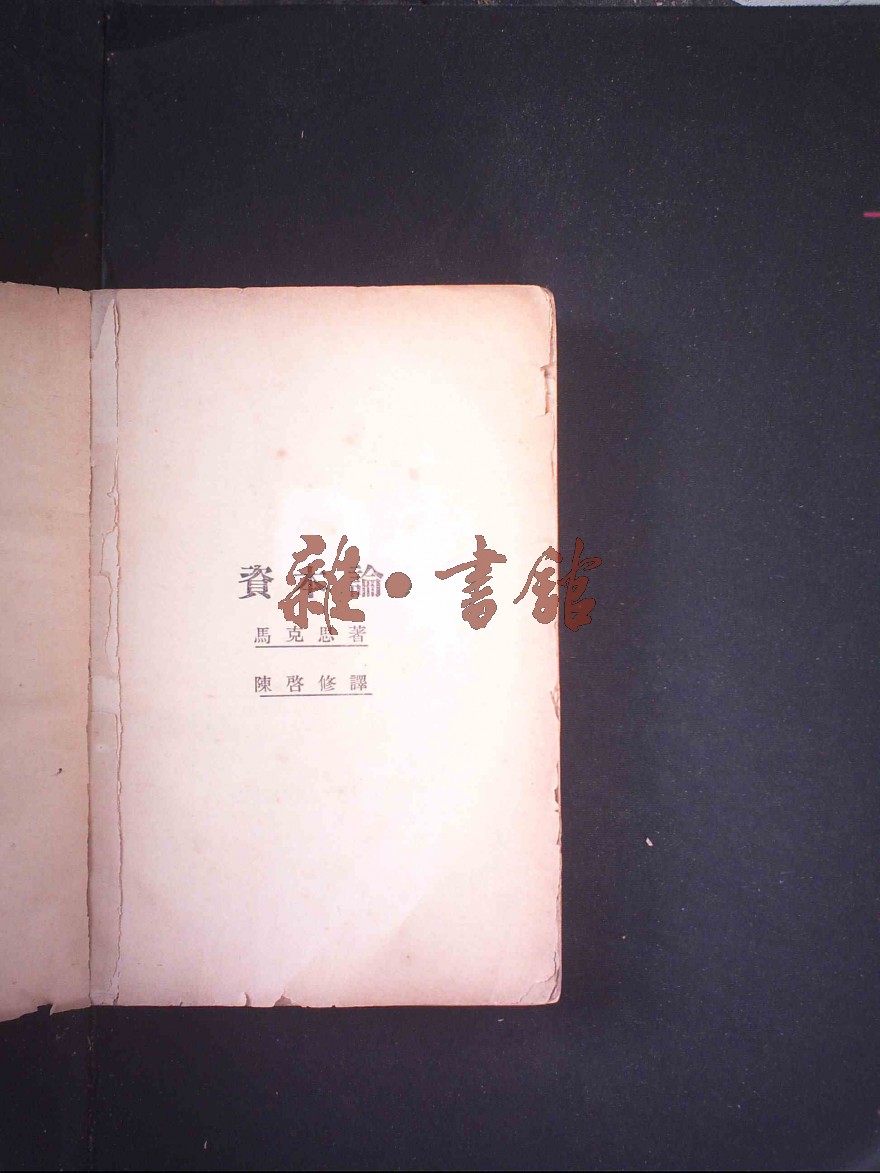 資本論
馬克思著
陳啓修譯
雜·書館